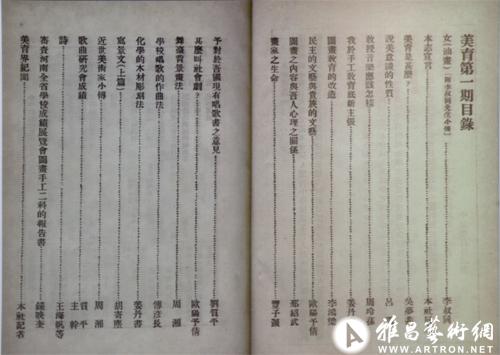 美育第一期目錄
女(油畫)(附李叔同先生小傳) 李叔
本志宣言 本社
美育是甚麼? 吳夢
說美意識的性質 呂
教授音樂應該怎樣 周玲蓀
我於手工教育底新主張 姜丹
圖畫教育的改造 李鴻梁
民主的文藝與貴族的文藝 歐陽予倩
圖畫之內容與吾人心理之關係 邢紹武
畫家之生命 豐子愷
予對於吾國現有唱歌書之意見 劉質平
甚麼叫社會劇? 歐陽予倩
舞臺背景畫法 周湘
學校唱歌的作曲法 傅彥長
化學的木材彫刻法 姜丹書
寫景文(上篇) 胡寄塵
近世美術家小傳 周湘
歌曲研究會成績 質平
詩 王海帆等
審查河南全省學校成績展覽會圖畫手工二科的報告書 鍾映奎
美育界紀聞 本社記者
雅昌藝術網
WWW.ARTRON.NET